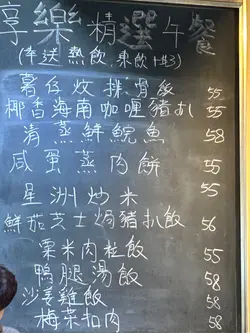 享樂精選午餐
(奉送熱飲,凍飲+$3)
薯仔炆排骨飯 55
椰香海南咖喱豬扒 55
清蒸鮮鯇魚 58
咸蛋蒸肉餅 55
星洲炒米 55
鮮茄芝士焗豬扒飯 56
粟米肉粒飯 55
鴨腿湯飯 58
沙姜雞飯 58
梅菜扣肉 58